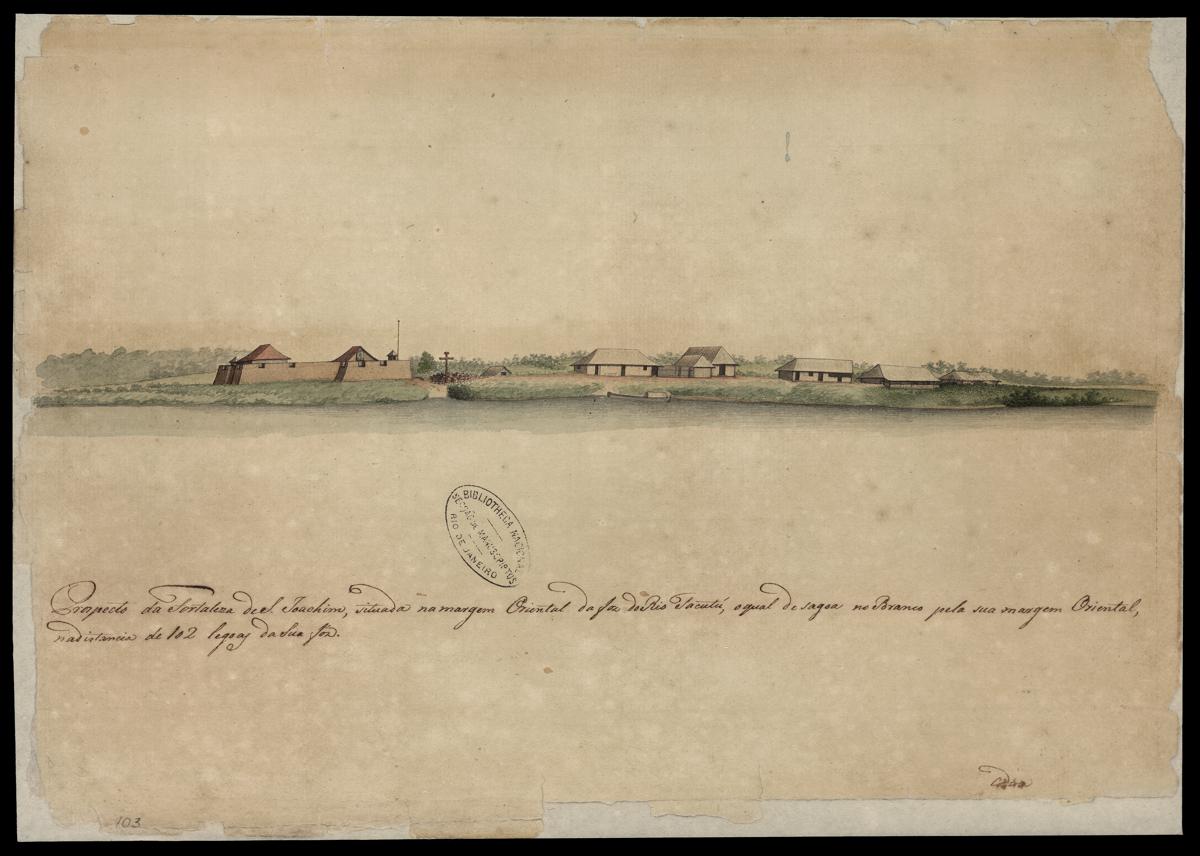 BIBLIOTHECA NACIONAL
SECÇÃO DE MANUSCRIPTOS
RIO DE JANEIRO
Prospecto da Fortaleza de S. Joachim, situada na margem Oriental da foz do Rio Tacutú, o qual desagoa no Branco pela sua margem Oriental,
na distancia de 102 legoas da sua foz.
103